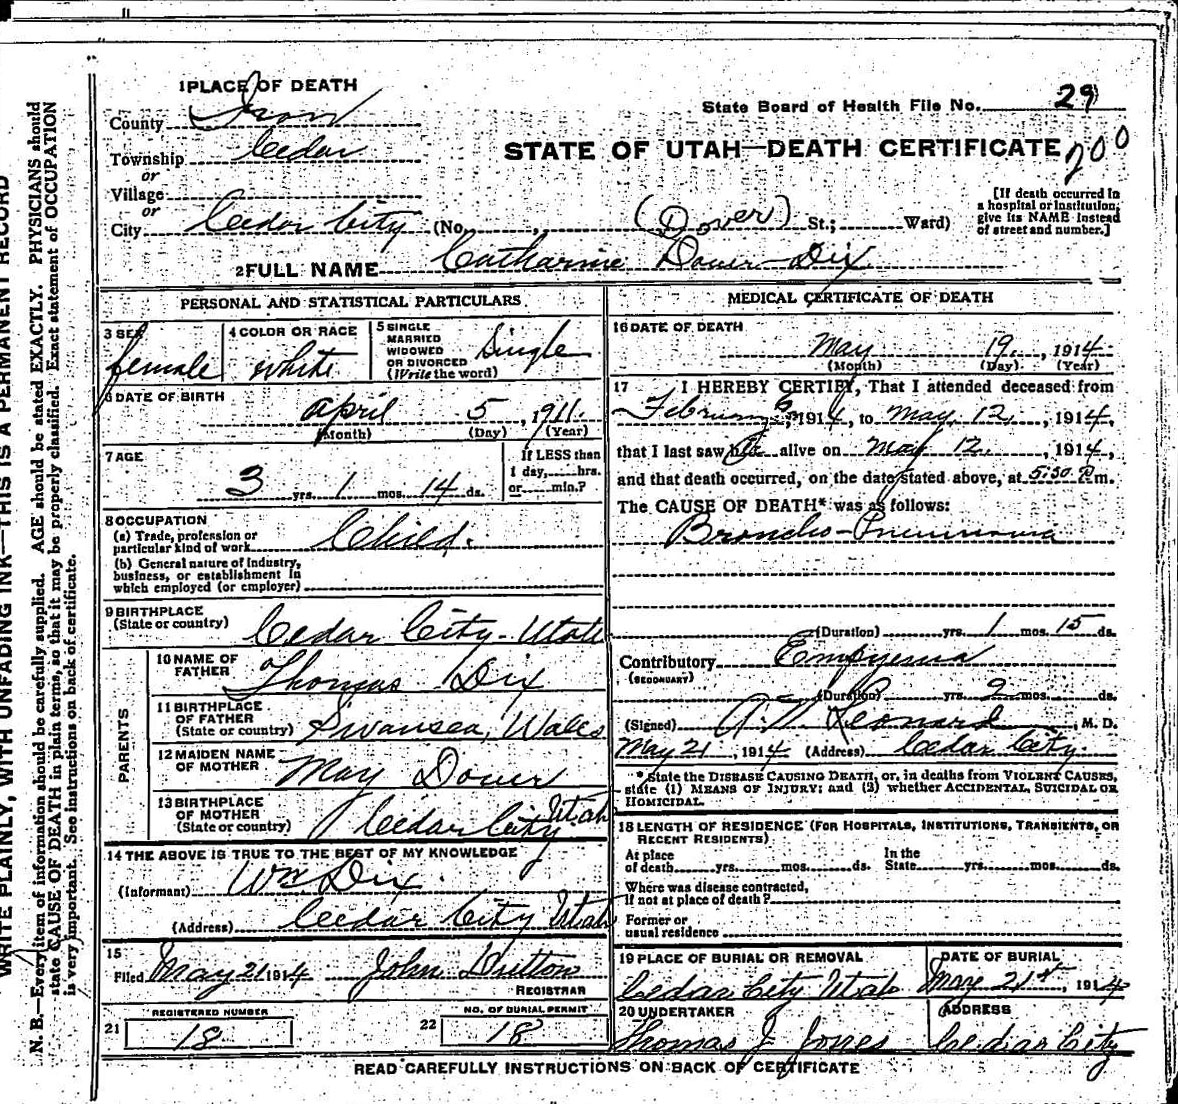 1 PLACE OF DEATH
County Iron
State Board of Health File No. 29
Township Cedar
or
STATE OF UTAH—DEATH CERTIFICATE 200
Village
or
City Cedar City (No. , (Dover) St.; Ward)
[If death occurred in a hospital or institution, give its NAME instead of street and number.]
2 FULL NAME Catharine Dover-Dix
PERSONAL AND STATISTICAL PARTICULARS
3 SEX female
4 COLOR OR RACE white
5 SINGLE MARRIED WIDOWED OR DIVORCED (Write the word) Single
6 DATE OF BIRTH
April 5, 1911.
(Month) (Day) (Year)
7 AGE
3 yrs. 1 mos. 14 ds.
If LESS than 1 day, hrs. or min.?
8 OCCUPATION
(a) Trade, profession or particular kind of work Child.
(b) General nature of industry,
business, or establishment in
which employed (or employer)
9 BIRTHPLACE
(State or country) Cedar City-Utah
PARENTS
10 NAME OF FATHER Thomas Dix
11 BIRTHPLACE OF FATHER (State or country) Swansea, Wales
12 MAIDEN NAME OF MOTHER May Dover
13 BIRTHPLACE OF MOTHER (State or country) Cedar City Utah
14 THE ABOVE IS TRUE TO THE BEST OF MY KNOWLEDGE
(Informant) Wm Dix.
(Address) Cedar City Utah
15
Filed May 21 1914 John
REGISTRAR
21 REGISTERED NUMBER 18
22 NO. OF BURIAL PERMIT 18
MEDICAL CERTIFICATE OF DEATH
16 DATE OF DEATH
May 19, 1914
(Month) (Day) (Year)
17 I HEREBY CERTIFY, That I attended deceased from
February 6, 1914, to May 12, 1914,
that I last saw her alive on May 12, 1914,
and that death occurred, on the date stated above, at 5:30 P.m.
The CAUSE OF DEATH* was as follows:
Broncho-Pneumonia
(Duration) yrs. 1 mos. 15 ds.
Contributory Empyema
(SECONDARY)
(Duration) yrs. 2 mos. ds.
(Signed) Leonard, M. D.
May 21, 1914 (Address) Cedar City.
* State the DISEASE CAUSING DEATH, or, in deaths from VIOLENT CAUSES,
state (1) MEANS OF INJURY; and (2) whether ACCIDENTAL, SUICIDAL OR
HOMICIDAL.
18 LENGTH OF RESIDENCE (FOR HOSPITALS, INSTITUTIONS, TRANSIENTS, OR
RECENT RESIDENTS)
At place of death yrs. mos. ds. In the State yrs. mos. ds.
Where was disease contracted,
if not at place of death?
Former or
usual residence
19 PLACE OF BURIAL OR REMOVAL
Cedar City Utah
DATE OF BURIAL
May 21st, 1914
20 UNDERTAKER
Thomas J. Jones
ADDRESS
Cedar City
READ CAREFULLY INSTRUCTIONS ON BACK OF CERTIFICATE
WRITE PLAINLY, WITH UNFADING INK—THIS IS A PERMANENT RECORD
N. B.—Every item of information should be carefully supplied. AGE should be stated EXACTLY. PHYSICIANS should
state CAUSE OF DEATH in plain terms, so that it may be properly classified. Exact statement of OCCUPATION
is very important. See instructions on back of certificate.